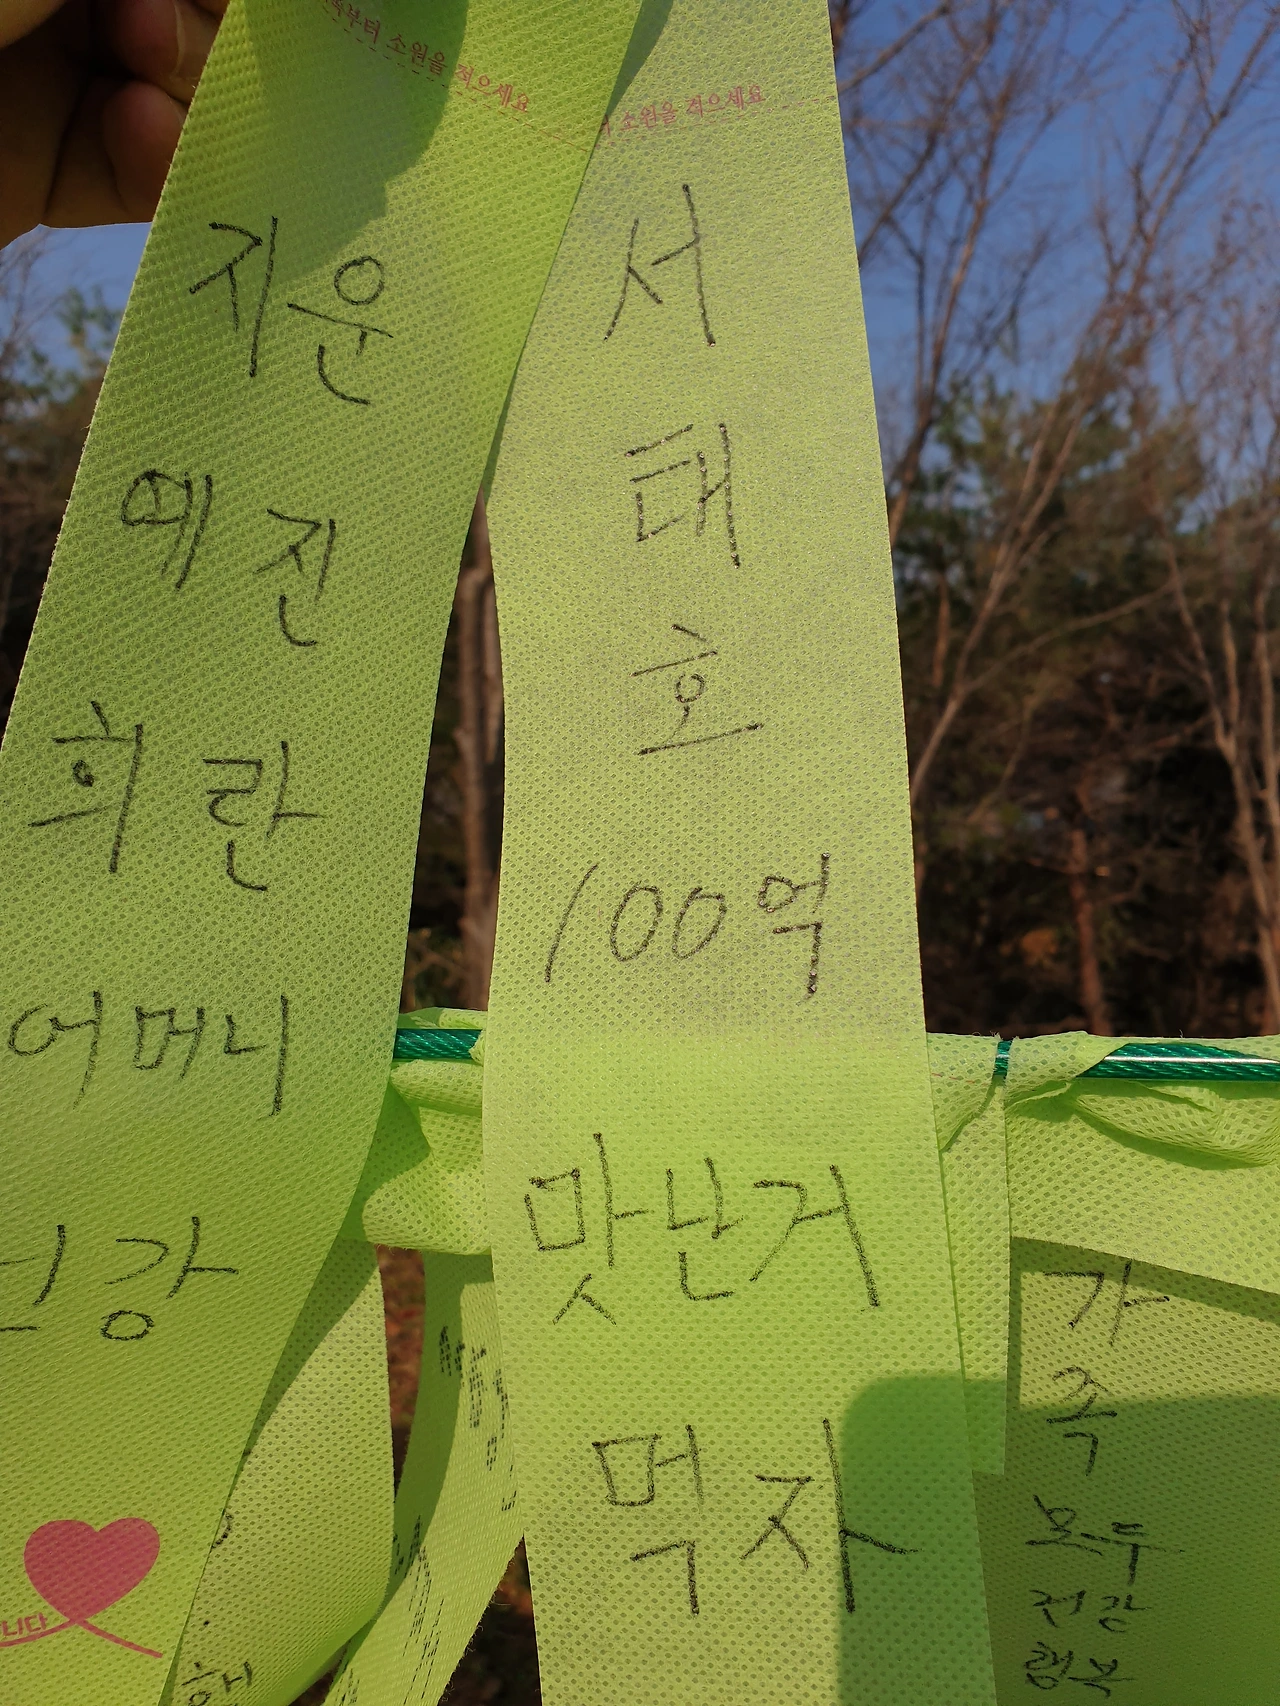 부터 소원을 적으세요
지운
예진
희란
어머니
건강
니다
소원을 적으세요
서
태
호
100억
맛난거
먹자
가
족
모두
건강
행복
해